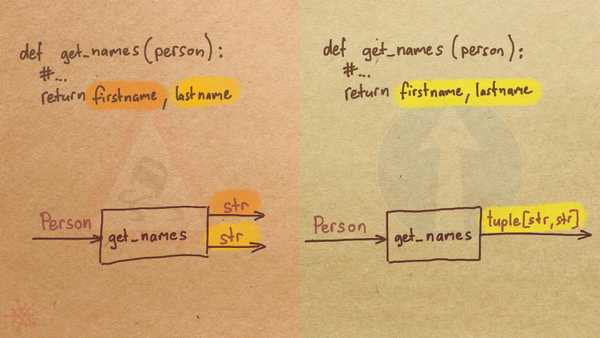 def get_names(person):
#...
return firstname, lastname
Person
get_names
str
str
def get_names (person):
#...
return firstname, lastname
Person
get_names
tuple[str,str]